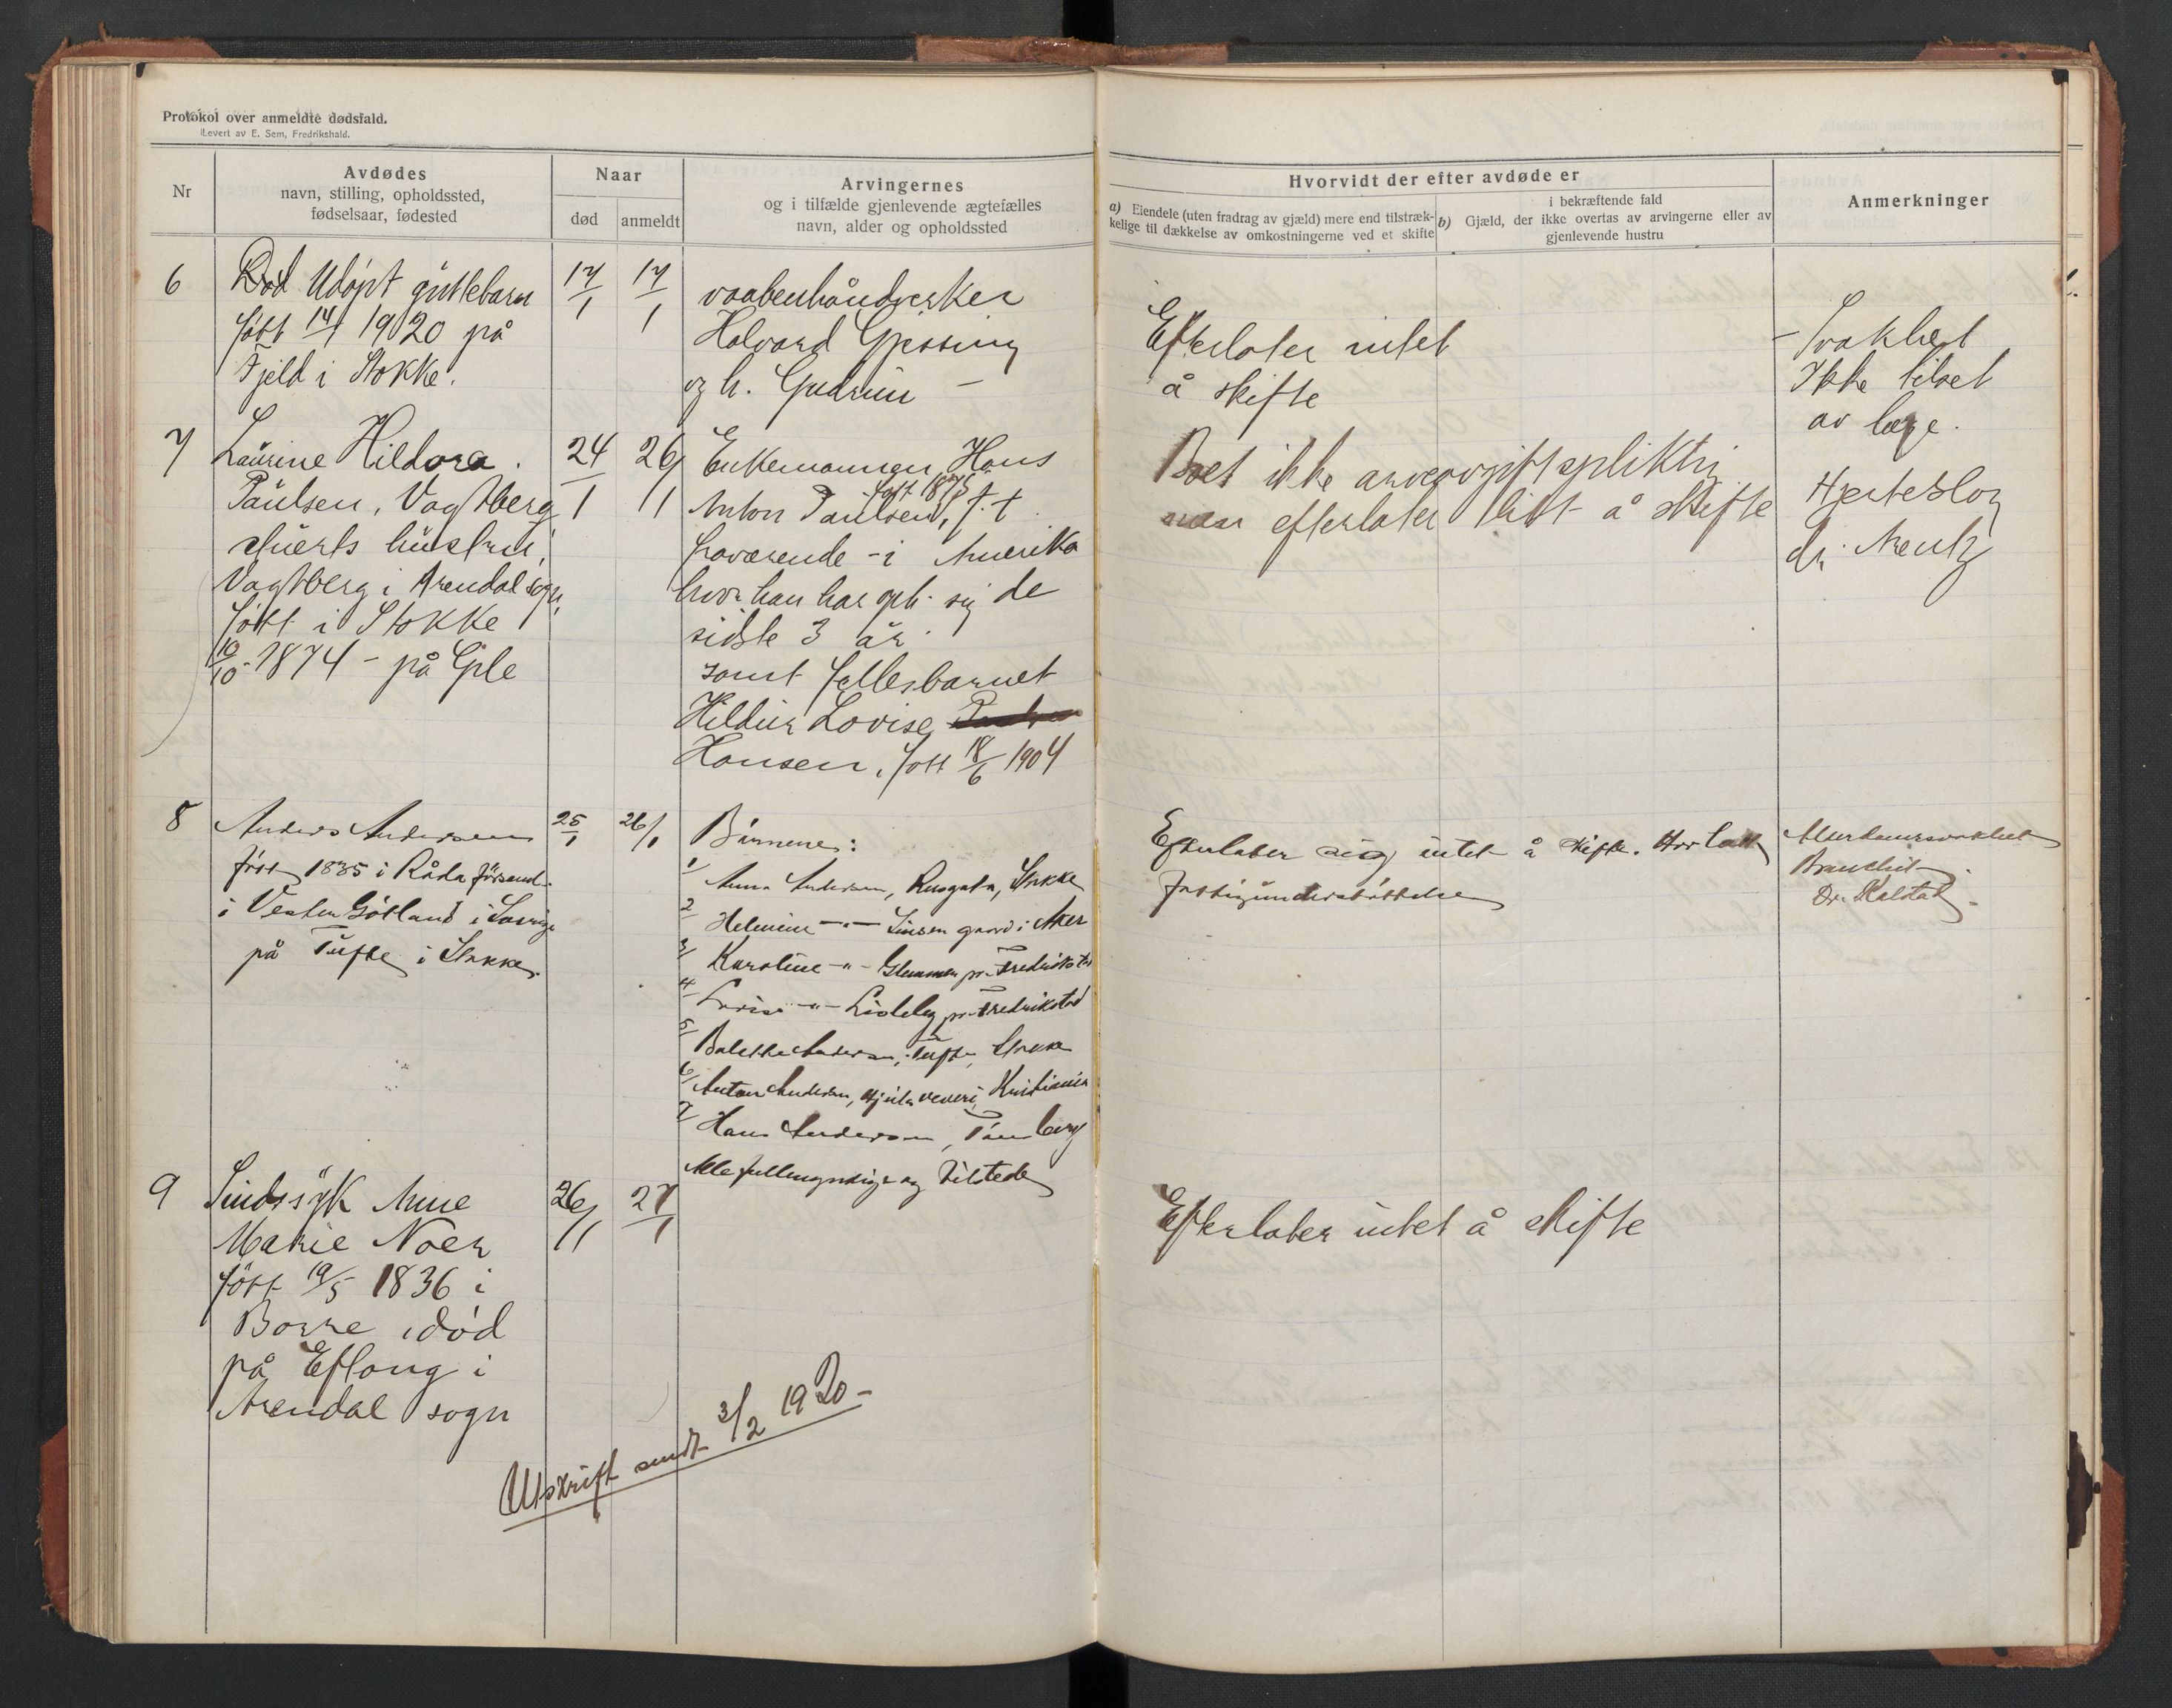 Protokol over anmeldte dødsfald.
Levert av E. Sem, Fredrikshald.
Nr
Avdødes
navn, stilling, opholdssted,
fødselsaar, fødested
Naar
død
anmeldt
Arvingernes
og i tilfælde gjenlevende ægtefælles
navn, alder og opholdssted
Hvorvidt der efter avdøde er
a) Eiendele (uten fradrag av gjæld) mere end tilstræk-
kelige til dækkelse av omkostningerne ved et skifte
i bekræftende fald
b) Gjæld, der ikke overtas av arvingerne eller av
gjenlevende hustru
Anmerkninger
6
Død Udöpt guttebarn
fött 14/1 1920 på
Fjeld i Stokke.
17/1
17/1
vaabenhåndverker
Halvard Gjessing
og h. Gudrun -
Efterlater intet
å skifte
- Svakhet
Ikke tilset
av læge.
7
Laurine Hildora
Paulsen, Vagtberg
hustru,
Vagtberg i Arendal sogn,
fött i Stokke
10/10 - 1874 - på Gple
24/1
26/1
Enkemannen Hans
fött 1875
Anton Paulsen, f. t.
fraværende - i Amerika
hvor han har oph. sig de
sidste 3 år.
samt fellesbarnet
Hildur Lovise
Hansen, fött 18/6 1904
Boet ikke arveavgiftspliktig
men efterlater litt å skifte
Hjerteslag
dr. Arentz
8
Anders Andersen
föd 1835 i Råda
i Vester Götland i Sverige
på Tufte i Stokke.
25/1
26/1
Barnene:
1/ Anna Andersen, Stokke
2/ Helmine -"- gaard i Aker
3/ Karoline -"- Glemmen pr. Fredrikstad
4/ Lovise -"- Lisleby pr. Fredrikstad
5/ Andersen, Tufte, Stokke
6/ Anton Andersen, Hjula veveri, Kristiania
7/ Hans Andersen, Tönsberg
Alle fullmyndige og tilstede
Efterlater sig intet å skifte. Har hatt
fattigunderstöttelse
Alderdomssvakhet
Dr. Kalstad
9
Sindssyk Anne
Marie Noer
fött 19/5 1836 i
Borre, död
på Eflang i
Arendal sogn
26/1
27/1
Efterlater intet å skifte
Utskrift sendt 3/2 1920 -